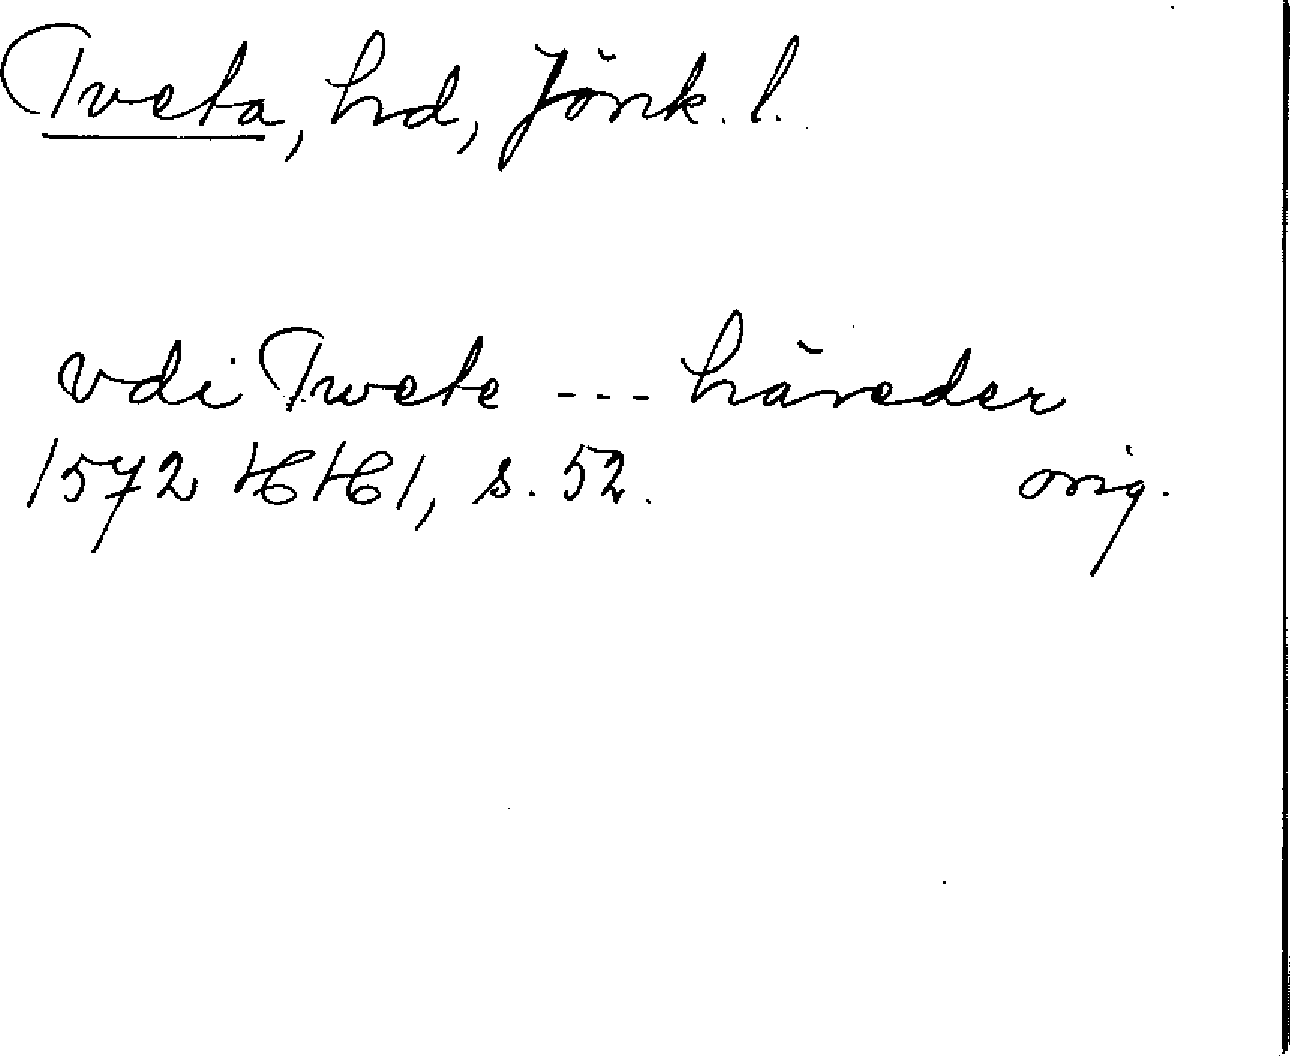 Tveta, hd, Jönk. l.
vdi Twete --- häreder
1572 HH 1, s. 52. orig.